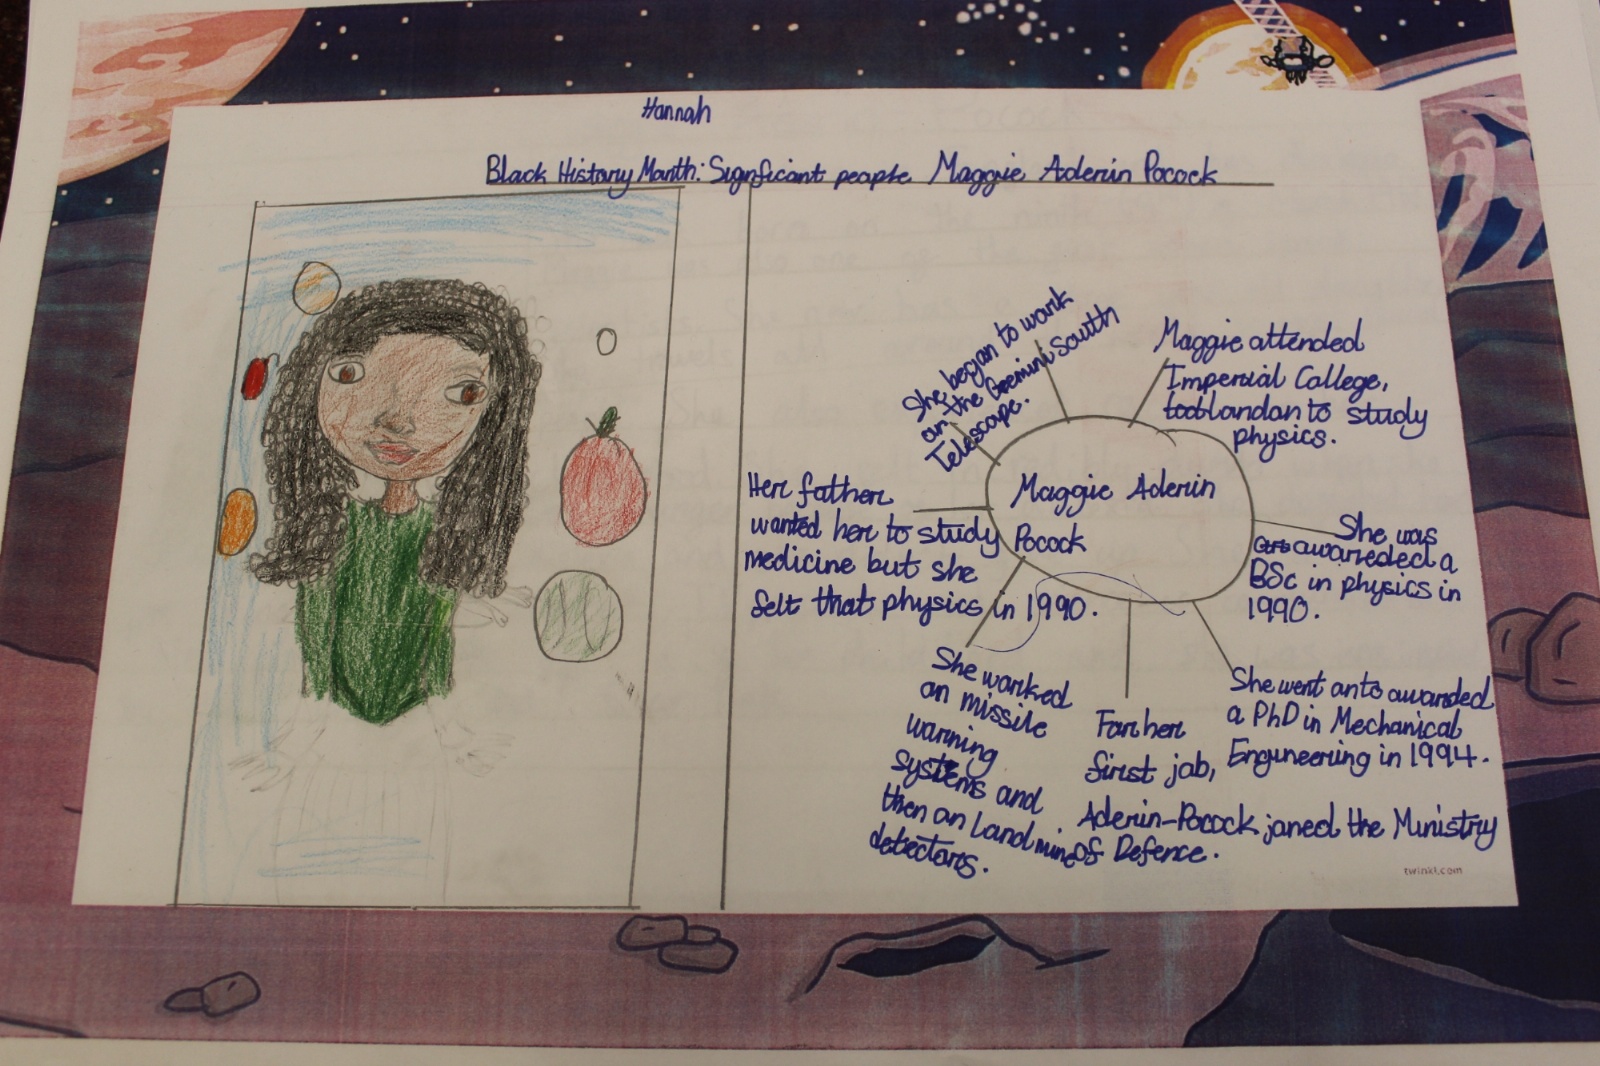 Hannah
Black History Month: Signficant people Maggie Aderin Pocock
She began to work
on the Geemini south
Telescope.
Maggie attended
Imperial College,
london to study
physics.
Her father
wanted her to study
medicine but she
felt that physics in 1990.
Maggie Aderin
Pocock
She was
awareded a
BSc in physics in
1990.
She worked
on missile
warning
systems and
then on land mine
detectors.
For her
first job,
Aderin-Pocock joned the Ministry
of Defence.
She went onto awarded
a PhD in Mechanical
Enguneering in 1994.
twinkl.com